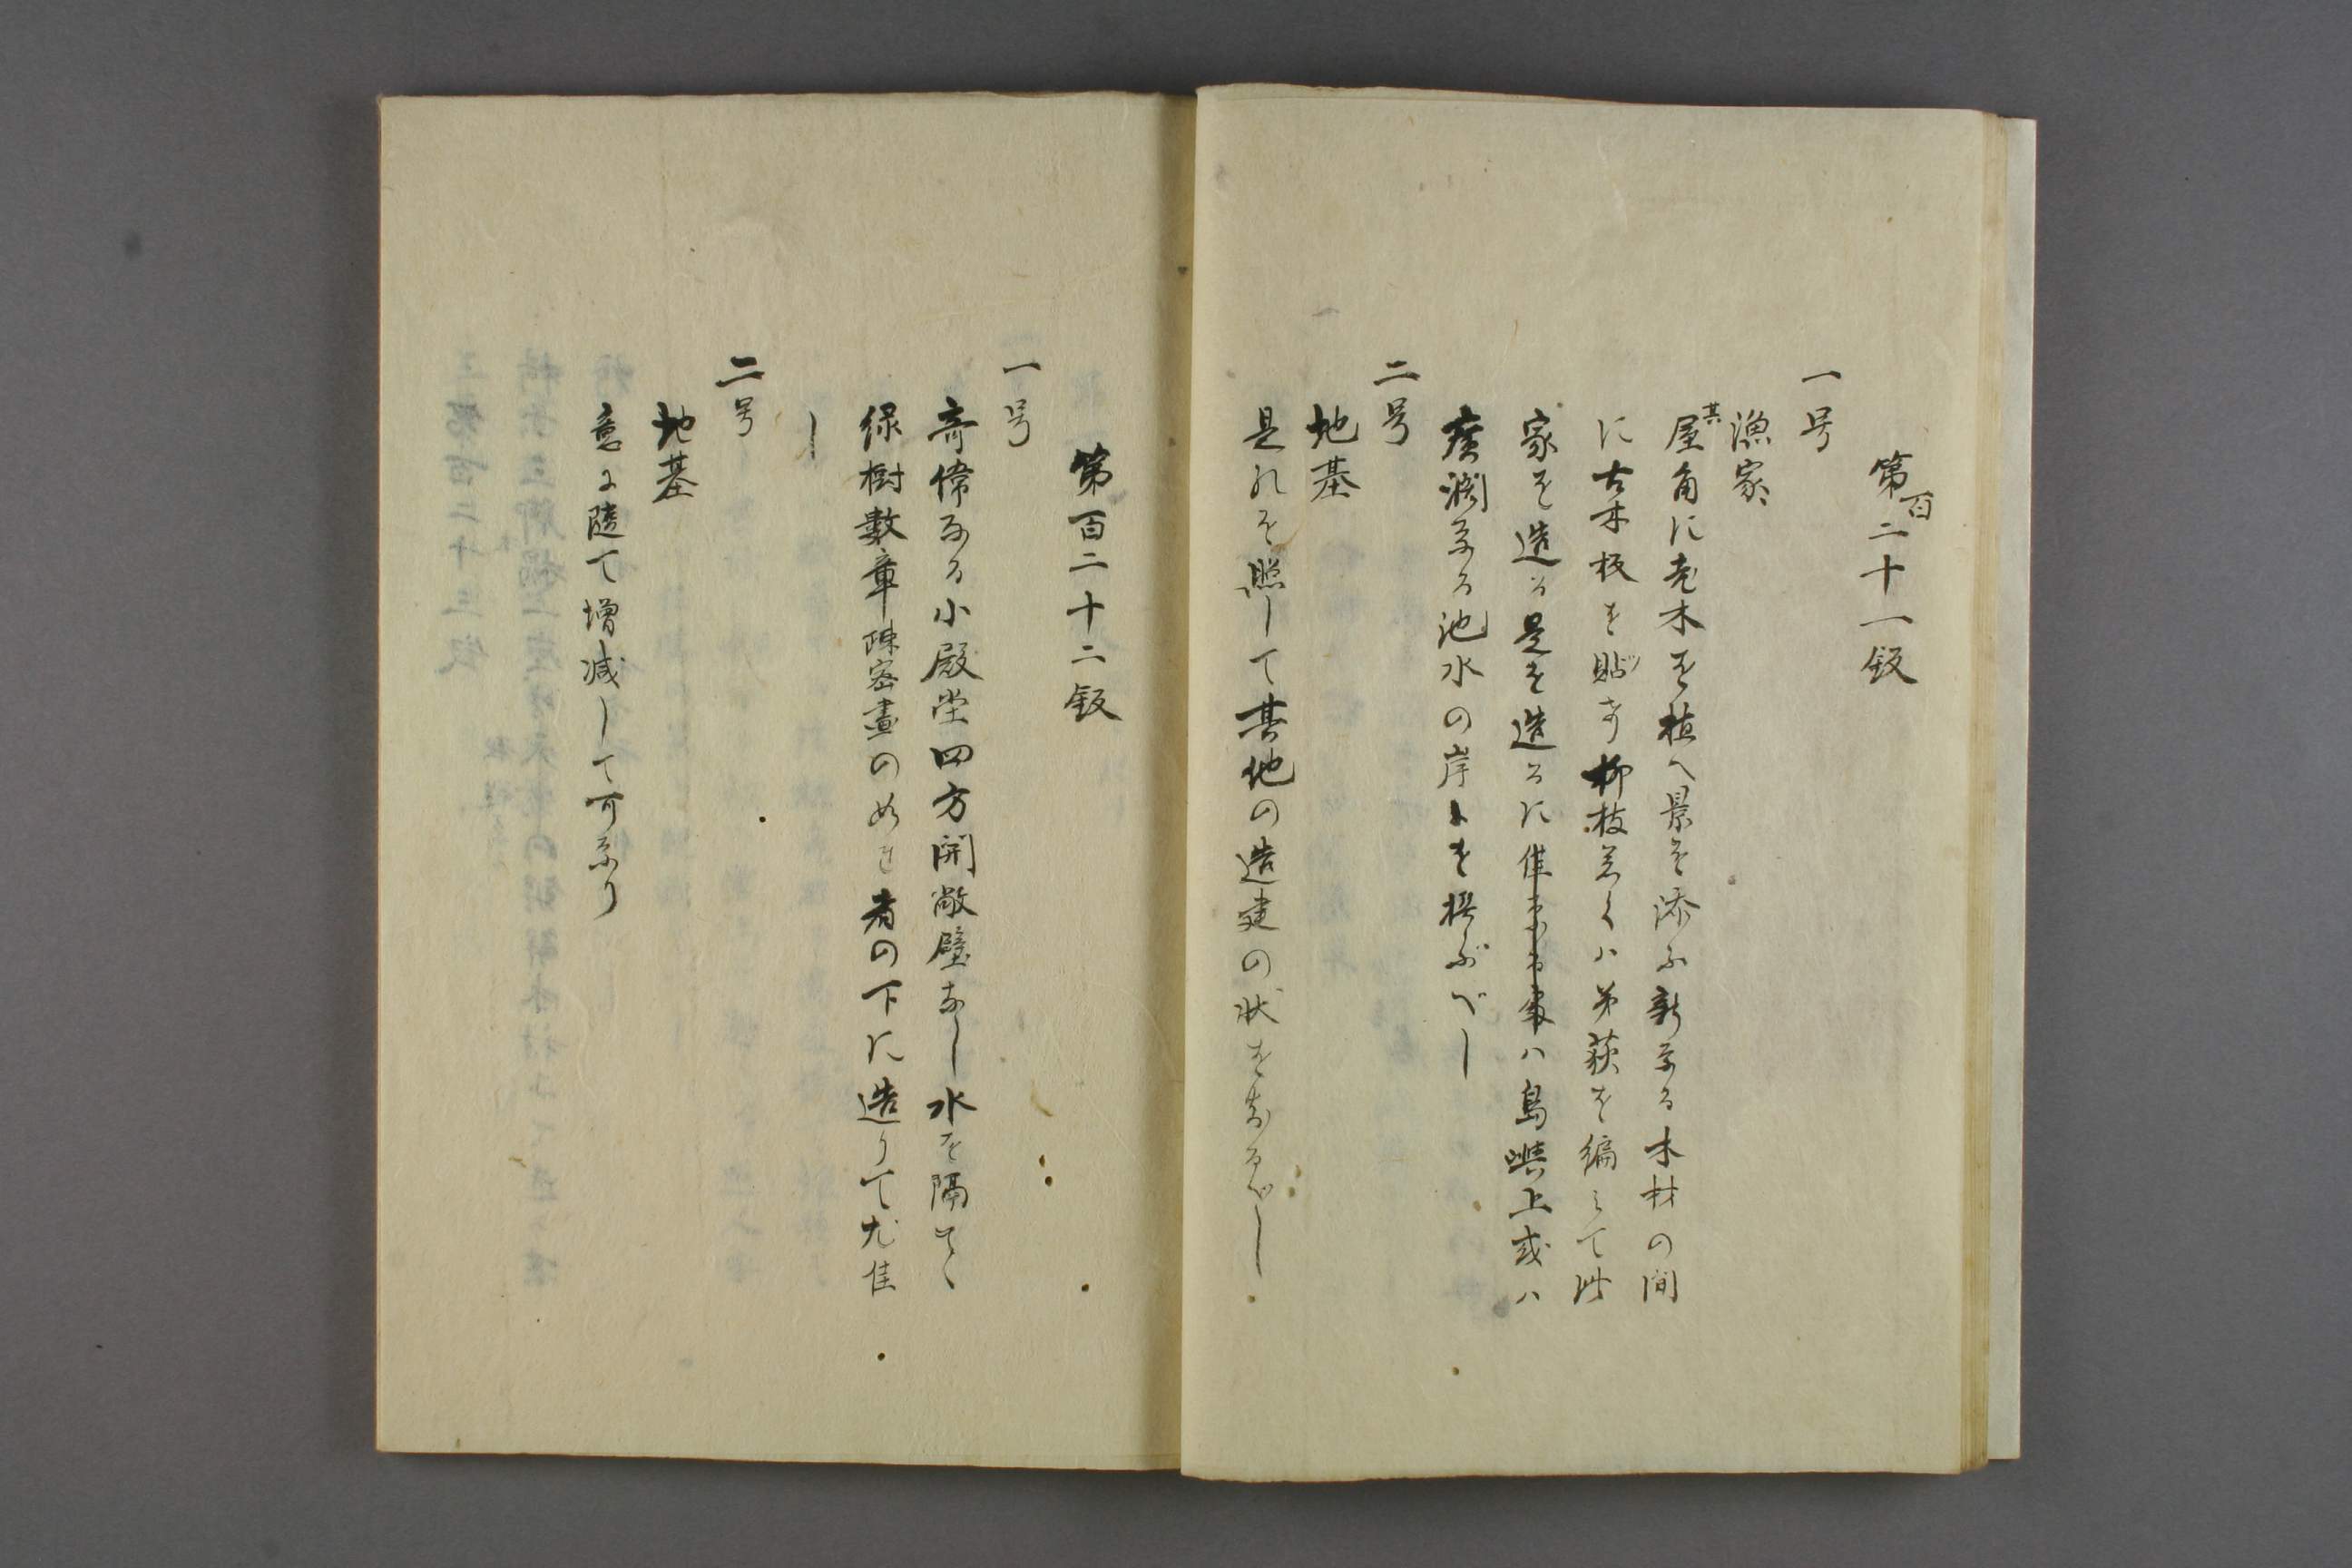 第百二十一鈑
一号
漁家
其屋角に老木を植へ景を添ふ新なる木材の間
に古木板を貼ツけ柳枝若くハ茅荻を編みて此
家を造る是を造るに ハ島嶼上或ハ
広濶なる池水の岸上を撰ぶべし
二号
地基
是れを照して其他の造建の状を知るべし
第百二十二鈑
一号
奇偉なる小殿堂四方開敞壁なし水を隔てゝ
緑樹数章陳密畫の如き者の下に造りて尤佳
し
二号
地基
意に随て増減して可なり